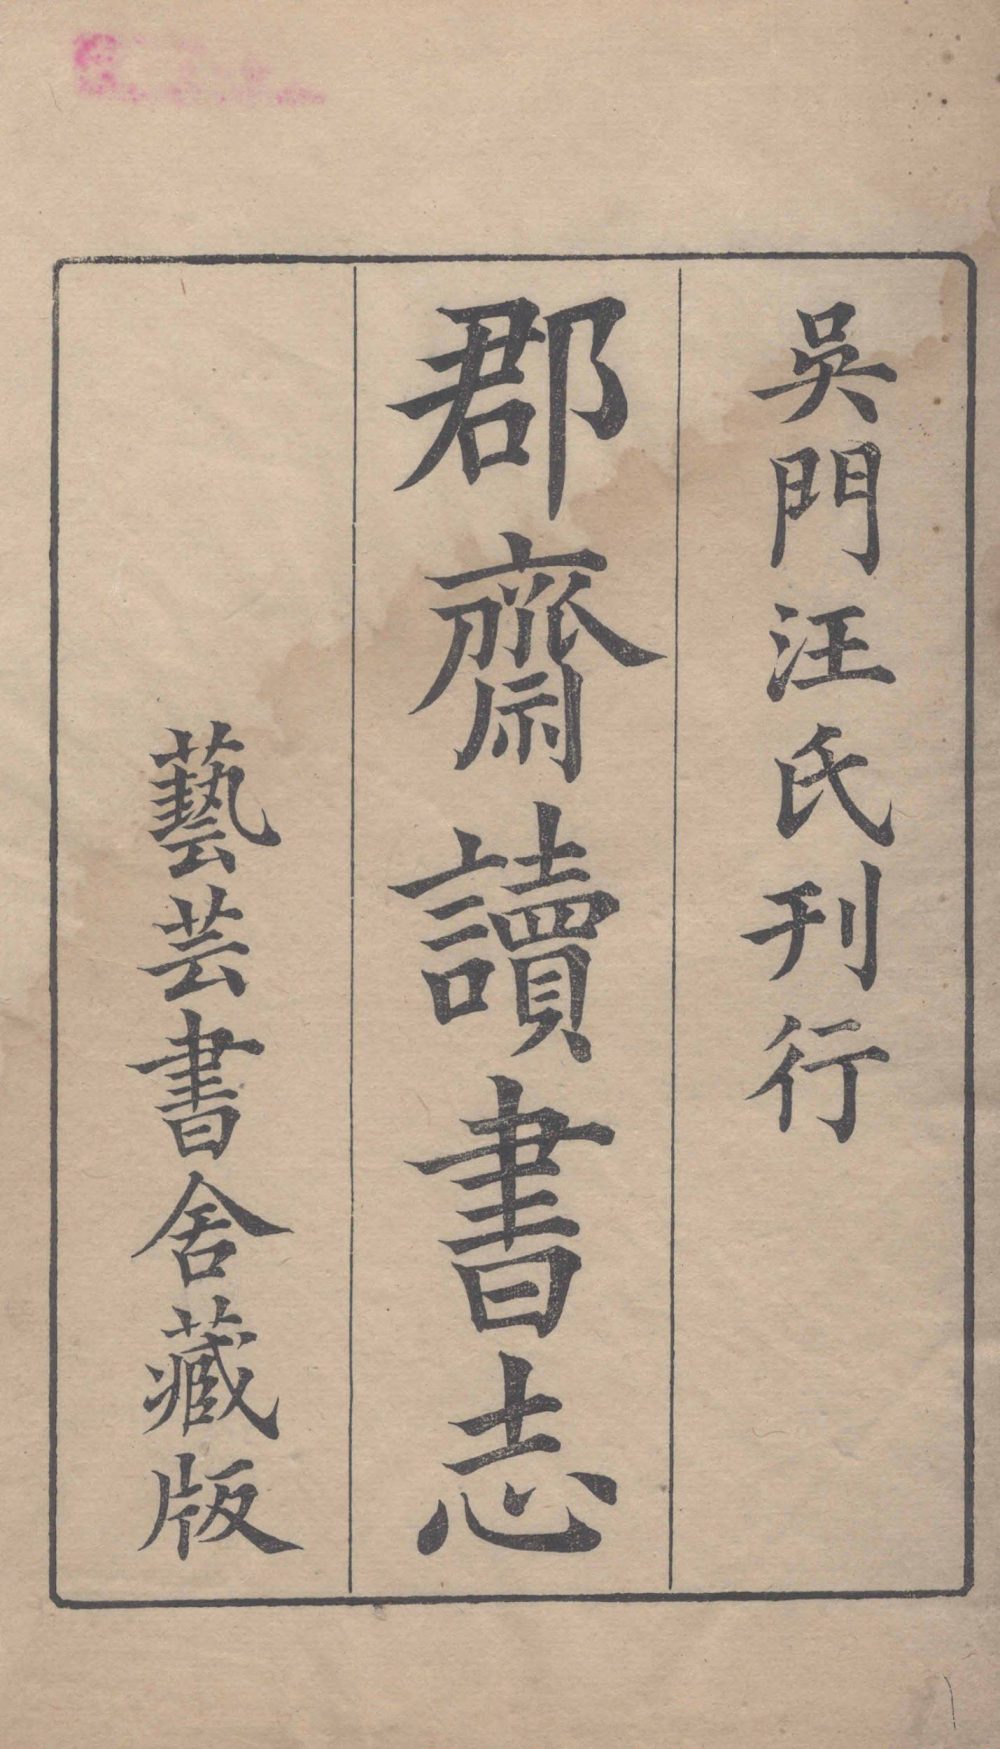 吳門汪氏刊行
郡齋讀書志
藝芸書舍藏版